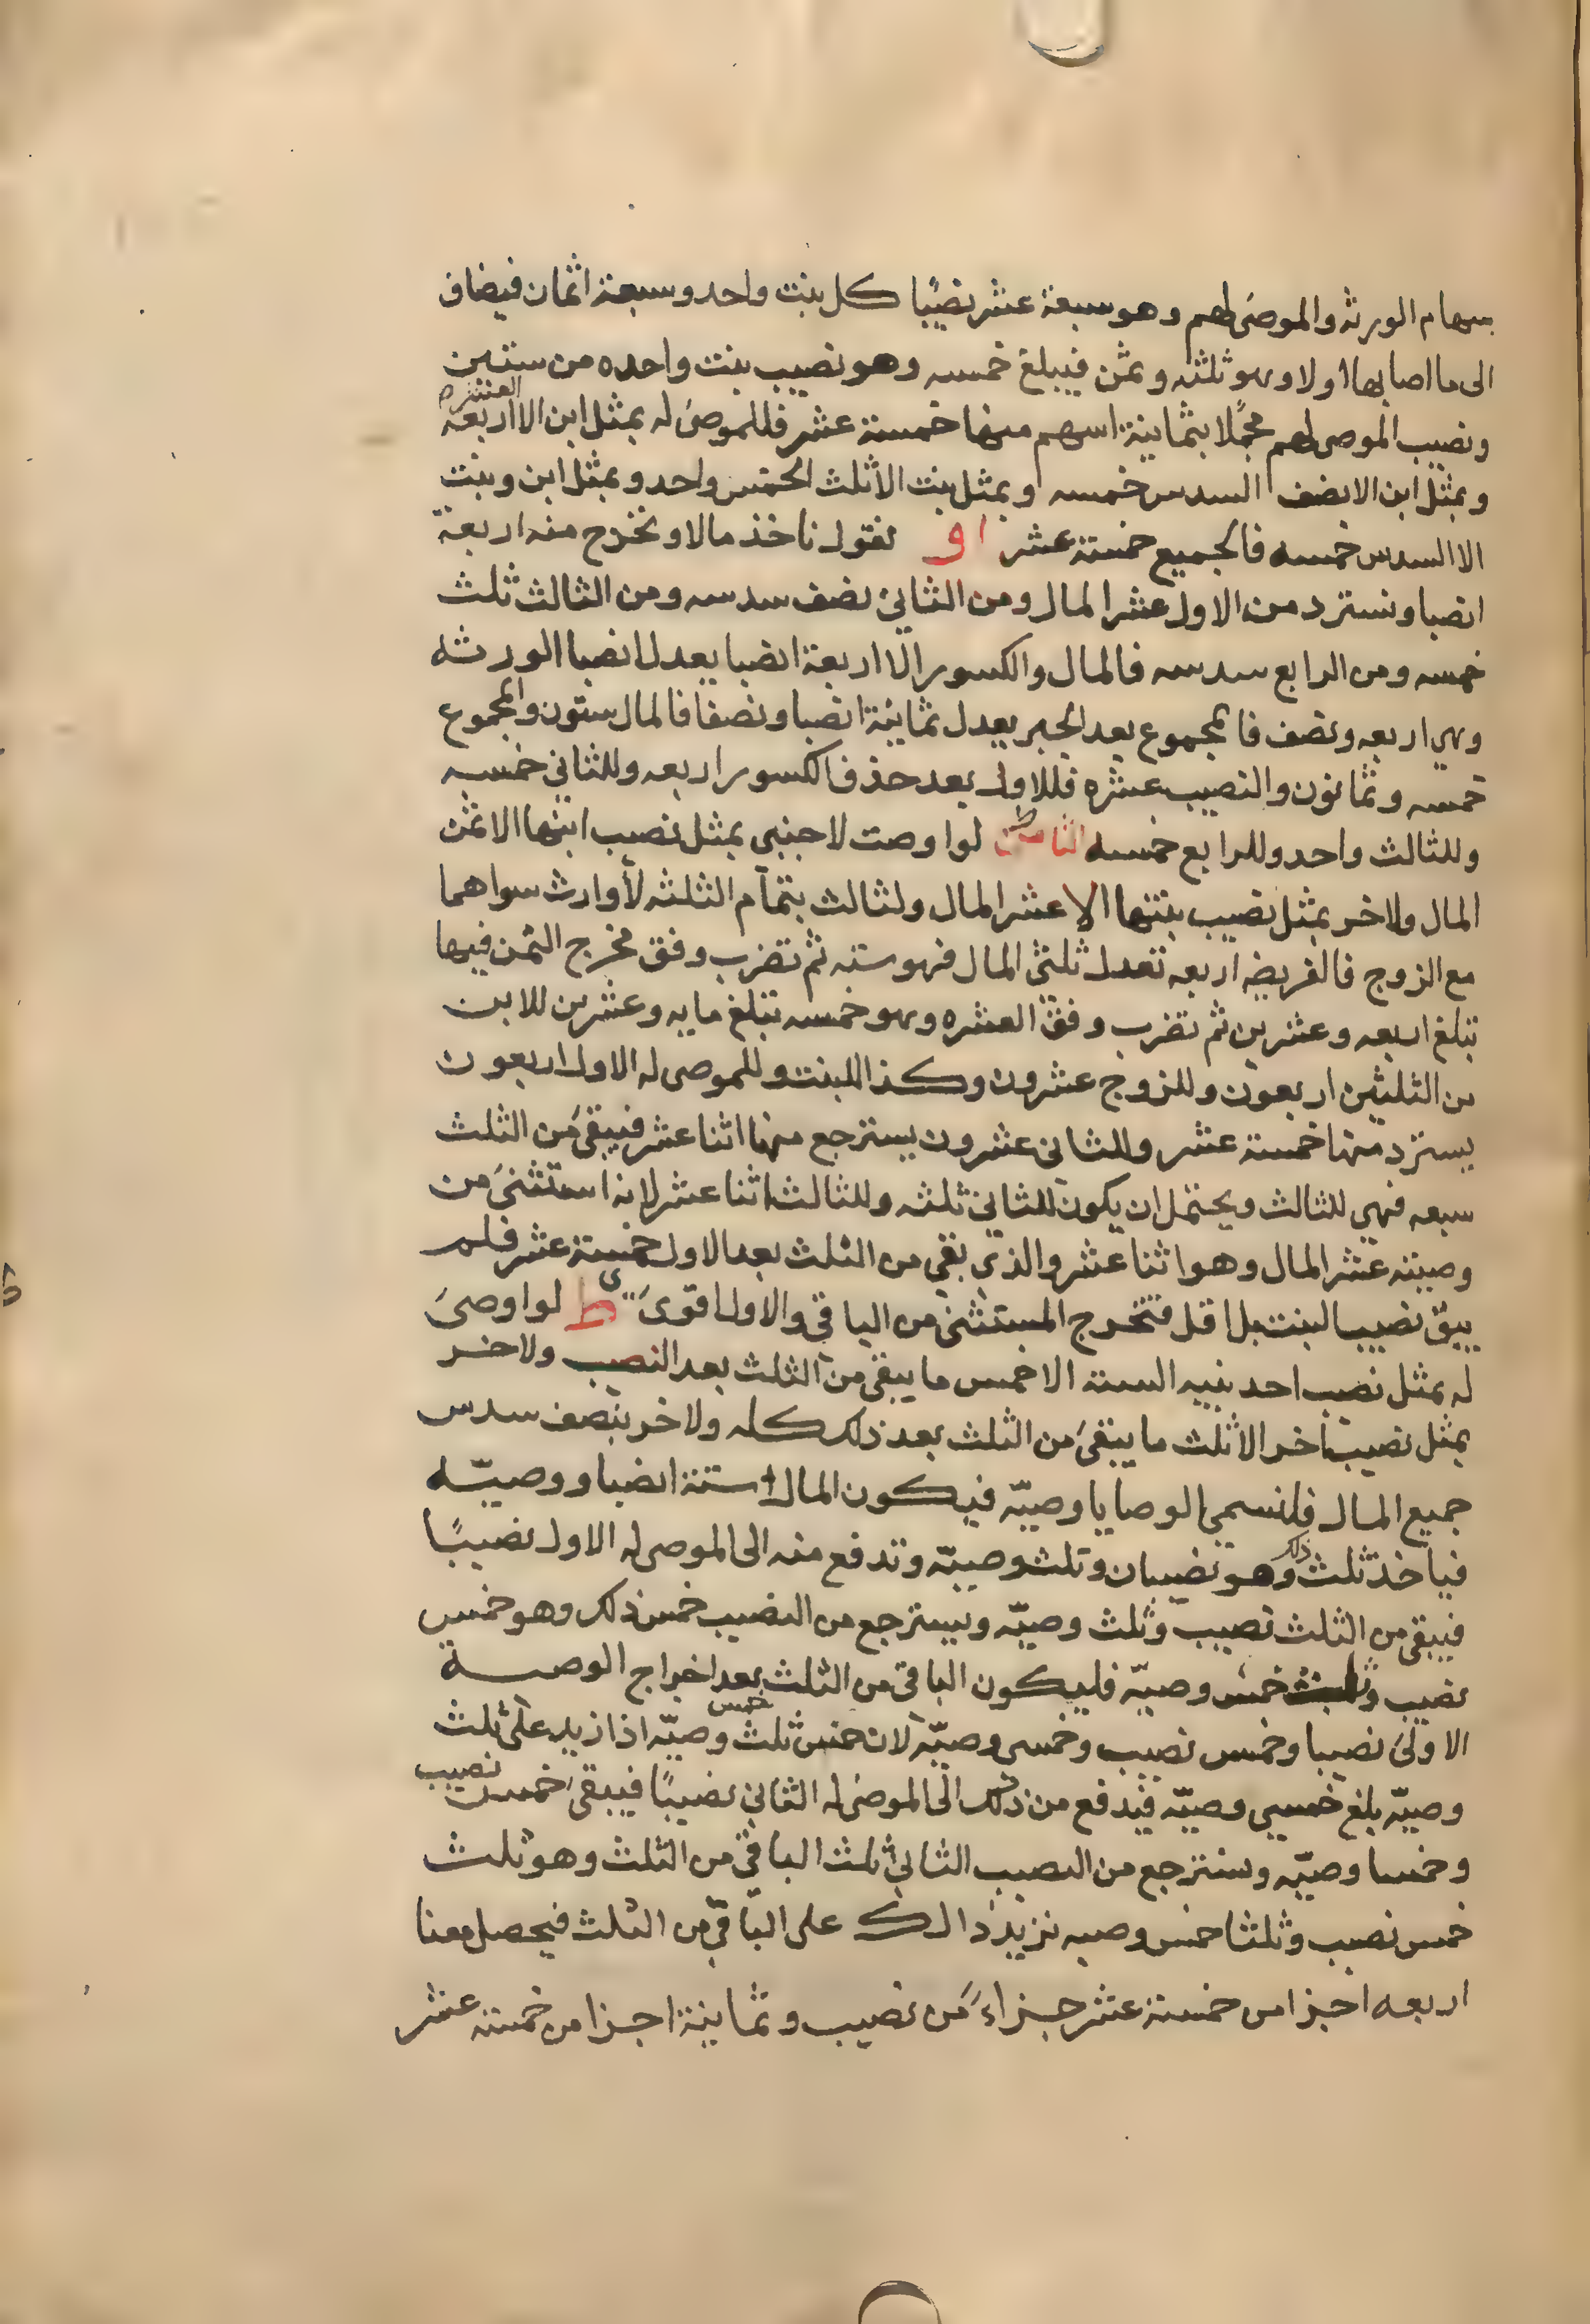 سهام الورثه والموصى لهم وهو سبعة عشر نصيبا كل بنت واحد وسبعة اثمان فيضاف
الى ما اصابها اولا وهو ثلثه وثمن فيبلغ خمسه وهو نصيب بنت واحده من ستين
ونصيب الموصى لهم مجملا بثمانية اسهم منها خمسة عشر فللموصى له بمثل ابن الا العشر اربعه
وبمثل ابن الا نصف السدس خمسه وبمثل بنت الا ثلث الخمس واحد وبمثل ابن وبنت
الا السدس خمسه فالجميع خمسة عشر او نقول ناخذ مالا ونخرج منه اربعة
انصبا ونسترد من الاول عشر المال ومن الثاني نصف سدسه ومن الثالث ثلث
خمسه ومن الرابع سدسه فالمال والكسور الا اربعة انصبا يعدل انصبا الورثه
وهي اربعه ونصف فالمجموع بعد الجبر يعدل ثمانية انصبا ونصفا فالمال ستون والمجموع
خمسه وثمانون والنصيب عشره فللاول بعد حذف الكسور اربعه وللثاني خمسه
وللثالث واحد وللرابع خمسه الثامن لو اوصت لاجنبي بمثل نصيب ابنها الا ثمن
المال ولاخر بمثل نصيب بنتها الا عشر المال ولثالث بتمام الثلث ولا وارث سواهما
مع الزوج فالفريضه اربعه تعدل ثلثى المال فهو سته ثم تضرب وفق مخرج الثمن فيها
تبلغ اربعه وعشرين ثم تضرب وفق العشره وهو خمسه تبلغ مايه وعشرين للابن
من الثلثين اربعون وللزوج عشرون وكذا للبنت وللموصى له الاول اربعون
يسترد منها خمسة عشر وللثانى عشرون يسترجع منها اثنا عشر فيبقى من الثلث
سبعه فهي للثالث ويحتمل ان يكون للثاني ثلثه وللثالث اثنا عشر لانه استثنى من
وصيته عشر المال وهو اثنا عشر والذي بقي من الثلث بعد الاول خمسة عشر فلم
يبق نصيبا لبنت بل اقل فتخرج المستثنى من الباقي والاول اقوى ط لو اوصى
له بمثل نصيب احد بنيه الستة الا خمس ما يبقى من الثلث بعد النصيب ولاخر
بمثل نصيب اخر الا ثلث ما يبقى من الثلث بعد ذلك كله ولاخر بنصف سدس
جميع المال فلنسمي الوصايا وصيّه فيكون المال ستة انصبا ووصيّه
فياخذ ثلث ذلك وهو نصيبان وثلث وصيّه وتدفع منه الى الموصى له الاول نصيبًا
فيبقى من الثلث نصيب وثلث وصيّه ويسترجع من النصيب خمس ذلك وهو خمس
نصيب وثلث خمس وصيّه فليكون الباقي من الثلث بعد اخراج الوصية
الاولى نصيبا وخمس نصيب وخمسى وصيّه لان خمس ثلث وصيّه اذا زيد على ثلث
وصيّه بلغ خمسي وصيّه فيدفع من ذلك الى الموصى له الثاني نصيبًا فيبقى خمس نصيب
وخمسا وصيّه ونسترجع من النصيب الثاني ثلث الباقي من الثلث وهو ثلث
خمس نصيب وثلثا خمس وصيه نزيد ذالك على الباقي من الثلث فيحصل معنا
اربعه اجزا من خمسة عشر جزاء من نصيب وثمانية اجزا من خمسة عشر